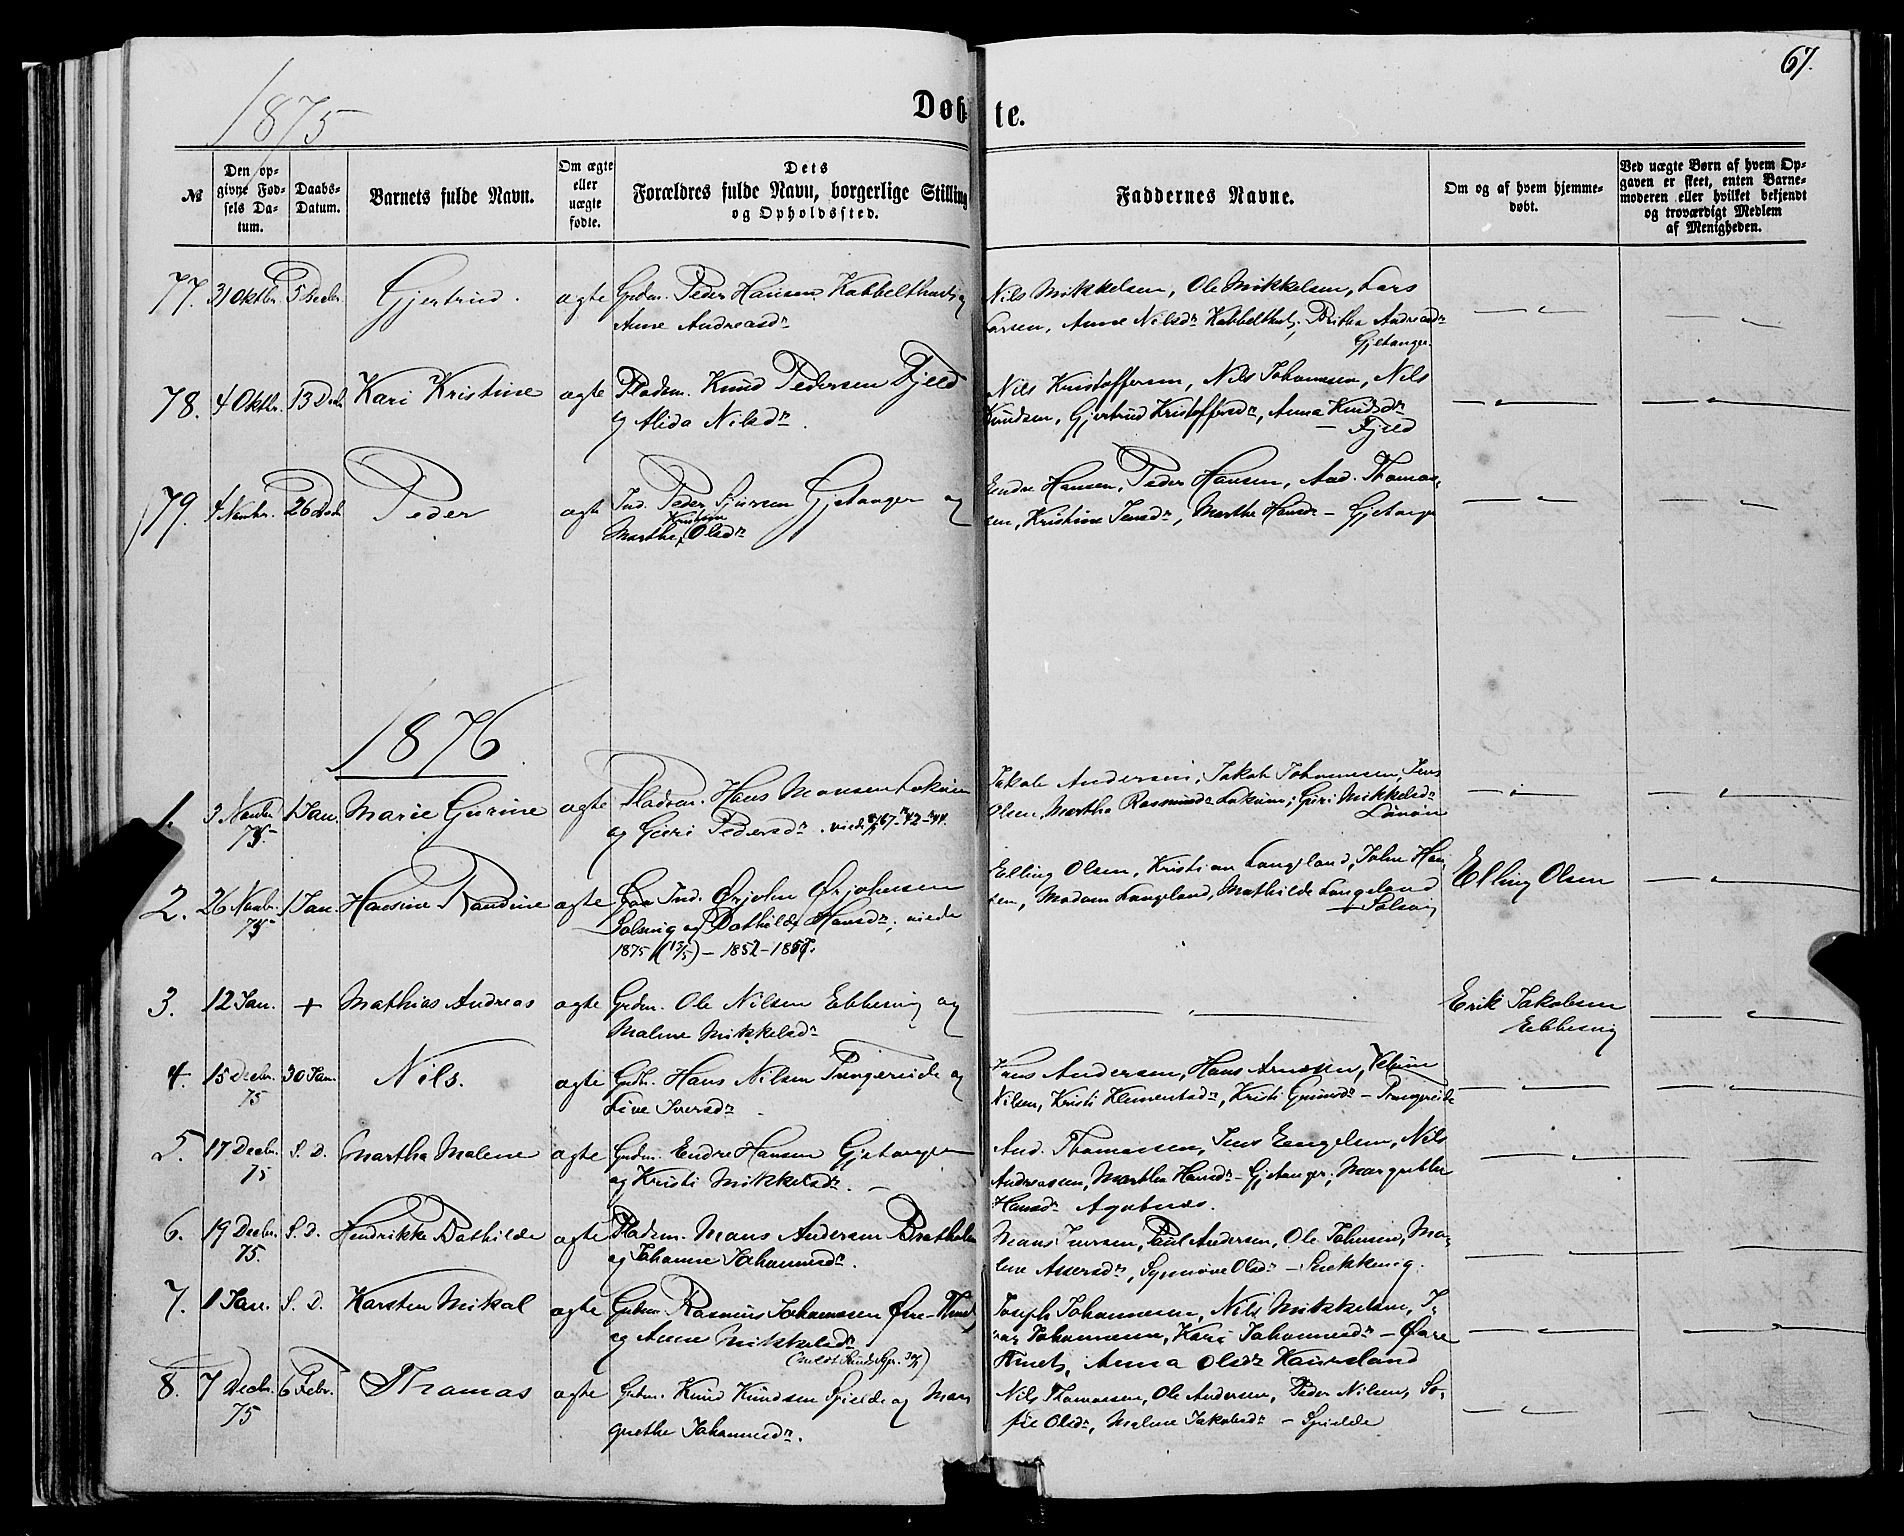 67.
1875
Døbte.
№
Den op-
givne Fød-
sels Da-
tum.
Daabs-
Datum.
Barnets fulde Navn.
Om ægte
eller
uægte
fødte.
Dets
Forældres fulde Navn, borgerlige Stilling
og Opholdssted.
Faddernes Navne.
Om og af hvem hjemme-
døbt.
Ved uægte Børn af hvem Op-
gaven er skeet, enten Barne-
moderen eller hvilket bekjendt
og troværdigt Medlem
af Menigheden.
77. 31 Oktbr. 5 Decbr. Gjertrud. ægte Grdm. Peder Hansen Kobbelthvedt og
Anne Andreasdr
Nils Mikkelsen, Ole Mikkelsen, Lars
Larsen, Anne Nilsdr Kobbelthvedt; Britha Andreasdr
Gjetanger.
78. 4 Oktbr. 13 Decbr Kari Kristine ægte Pladsm. Knud Pedersen Fjeld
og Alida Nilsdr.
Nils Kristoffersen, Nils Johannesen, Nils
Knudsen, Gjertrud Kristoffersdr, Anna Knudsdr
— Fjeld
79. 4 Novbr. 26 Decb. Peder ægte Ind. Peder Sjursen Gjetanger og
Kristine
Marthe Olsdr
Endre Hansen, Peder Hansen, And. Thomas-
sen, Kristine Jensdr, Marthe Hansdr — Gjetanger
1876
1. 3 Novbr 1 Jan. Marie Gurine ægte Pladsm. Hans Monsen Lokøen
75 og Guri Pedersdr. viede 67 - 42 - 44.
Jakob Andersen, Jakob Johannesen, Jens
Olsen, Martha Rasmusdr Lokøen; Guri Mikkelsdr
Lønøen
2. 26 Novbr. 1 Jan. Hansine Randine ægte Ind. Ørjohn Ørjohnsen
75 Solsvig og Bothilde Hansdr; viede
1875 (13/5) — 1852 — 1857.
Elling Olsen, Kristian Langeland, John Han-
sen, Madam Langeland, Mathilde Langeland
— Solsvig
Elling Olsen
3. 12 Jan. + Mathias Andreas ægte Grdm. Ole Nilsen Ebbesvig og
Malene Mikkelsdr
Erik Jakobsen
Ebbesvig
4. 15 Decbr. 30 Jan. Nils. ægte Grdbr. Hans Nilsen Tungereide og
75 Live Iversdr.
Hans Andersen, Hans Arnesen,
Nilsen, Kristi Klementsdr, Kristi Gunnarsdr — Tungereide
5. 17 Decbr. S. D. Martha Malene ægte Grdm. Endre Hansen Gjetanger
75 og Kristi Mikkelsdr.
And. Thomassen, Jens Engelsen, Nils
Andreassen, Martha Hansdr — Gjetanger; Margrethe
Hansdr Agotnæs.
6. 19 Decbr. S. D. Hendrikke Bothilde ægte Pladsm. Mons Andersen Bratholm
75. og Johanne Johannesdr.
Mons Iversen, Paul Andersen, Ole Johnsen, Ma-
lene Assersdr, Synnøve Olsdr — Snekkevig.
7. 1 Jan. S. D. Karsten Mikal ægte Grdm. Rasmus Johannesen Øvre-Tvedt
og Anne Mikkelsdr
Joseph Johannesen, Nils Mikkelsen, I-
var Johannesen, Kari Johannesdr — Øvre
Tvedt, Anna Olsdr Haursland
8. 7 Decbr. 6 Febr. Thomas ægte Grdm. Knud Knudsen Spjelde og Mar-
75 grethe Johannesdr.
Nils Thomassen, Ole Andersen, Peder Nilsen, So-
fie Olsdr, Malene Jakobsdr — Spjelde